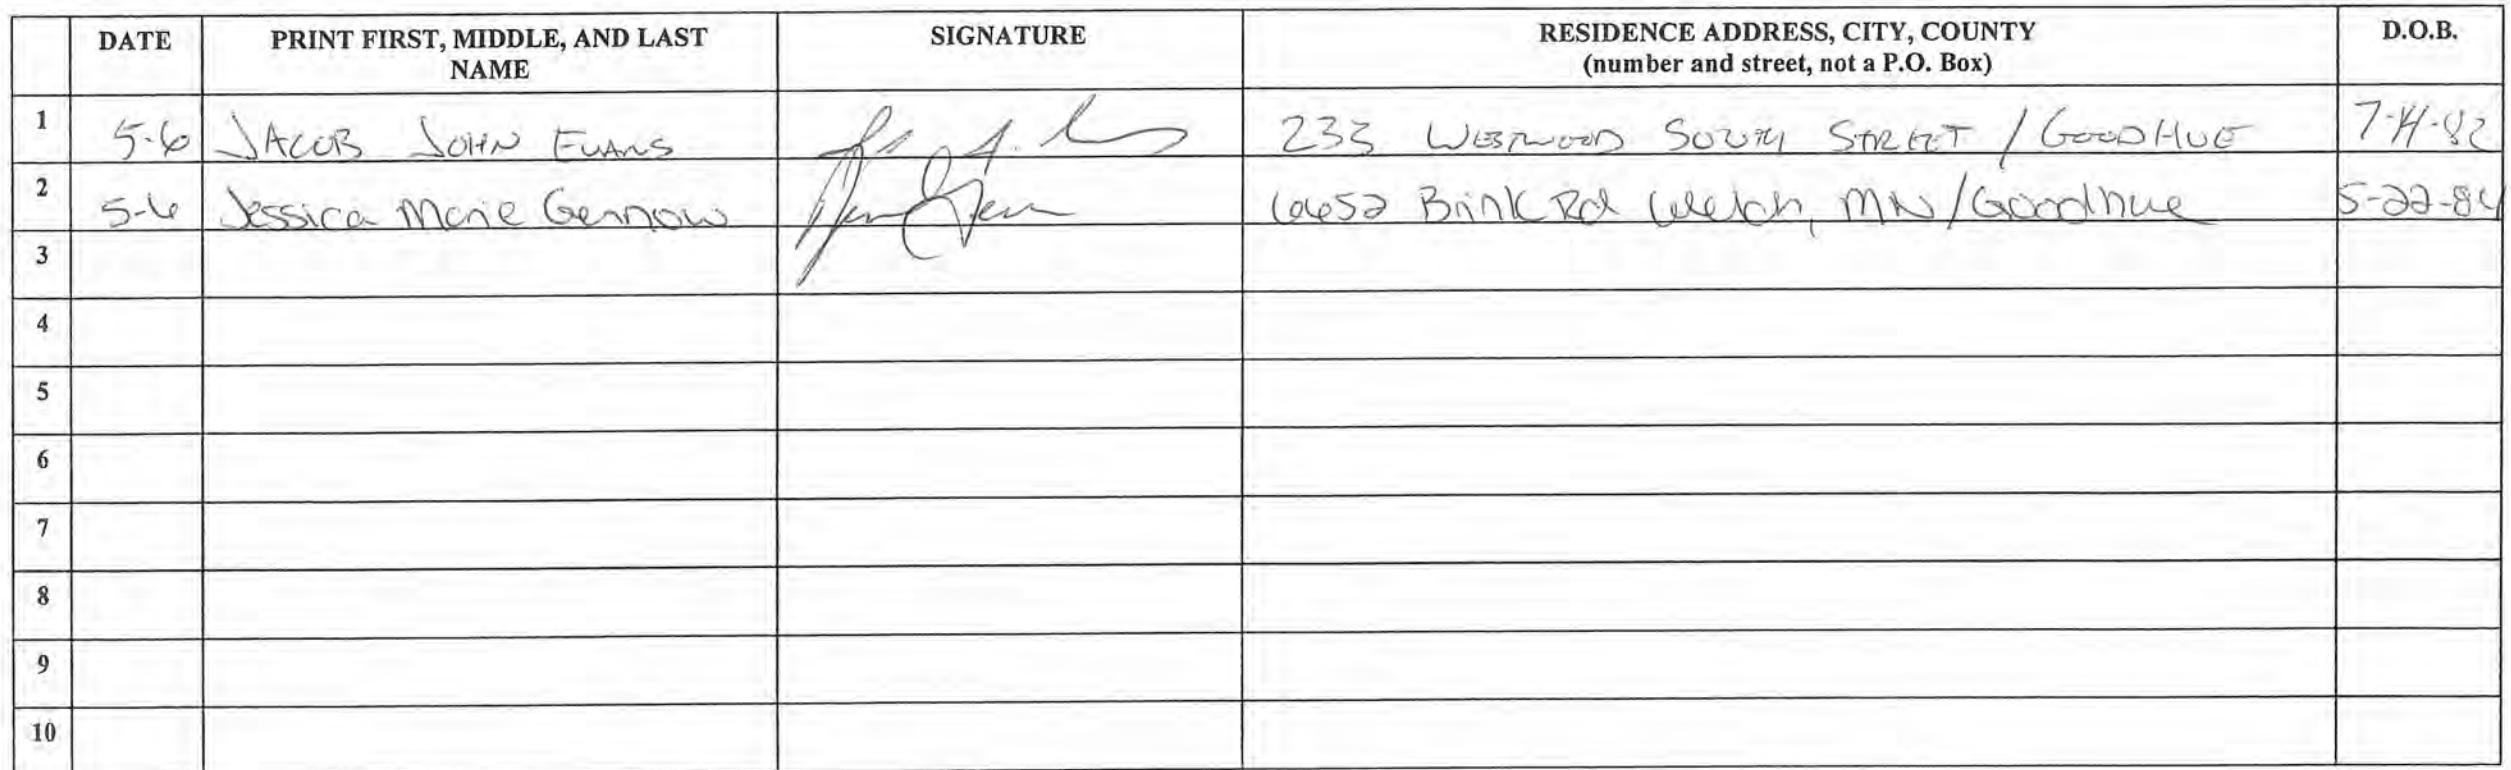 DATE PRINT FIRST, MIDDLE, AND LAST SIGNATURE RESIDENCE ADDRESS, CITY, COUNTY D.O.B.
NAME (number and street, not a P.O. Box)
1 5-6 JACOB JOHN EVANS 233 WESTWOOD SOUTH STREET / GOODHUE 7-14-82
2 5-6 Jessica Marie Gernow 6652 Brink Rd Welch, MN/Goodhue 5-22-84
3
4
5
6
7
8
9
10